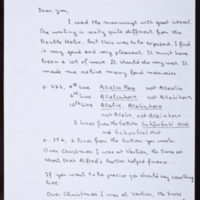 Dear Jim,
I read the manuscript with great interest.
The writing is really quite different from the
Double Helix, but that was to be expected. I find
it very good and very pleasant. It must have
been a lot of work. It should do very well. It
made me relive many fond memories.
p. 232, 4th line Allelin not Allelin
8th line not
10th line
not Alalin, not
5 lines from the bottom Hut
not Hut
p. 234, 6 lines from the bottom you wrote
Over Christmas I was at Verbier, the Swiss
resort that Alfred's
If you want to be precise you should say something
like
Over Christmas I was at Verbier, the Swiss